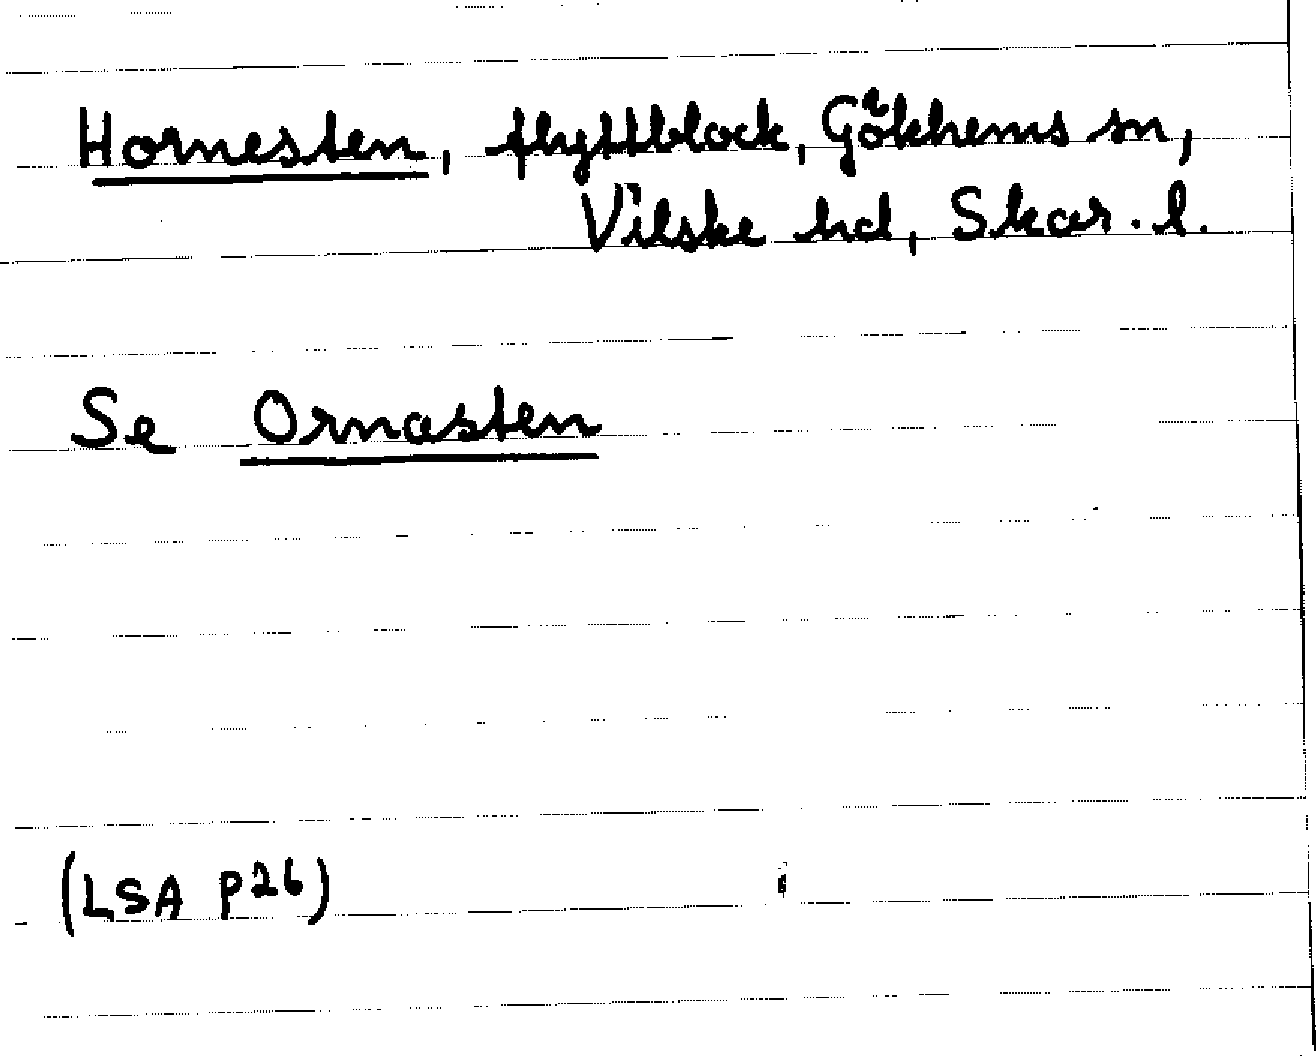 Hornesten, flyttblock, Gökhems sn,
Vilske hd, Skar. l.
Se Ornasten
(LSA p26)